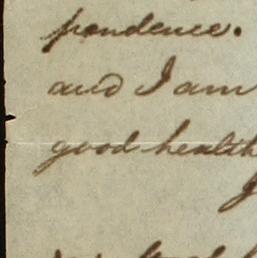 pondence.
and I am
good health